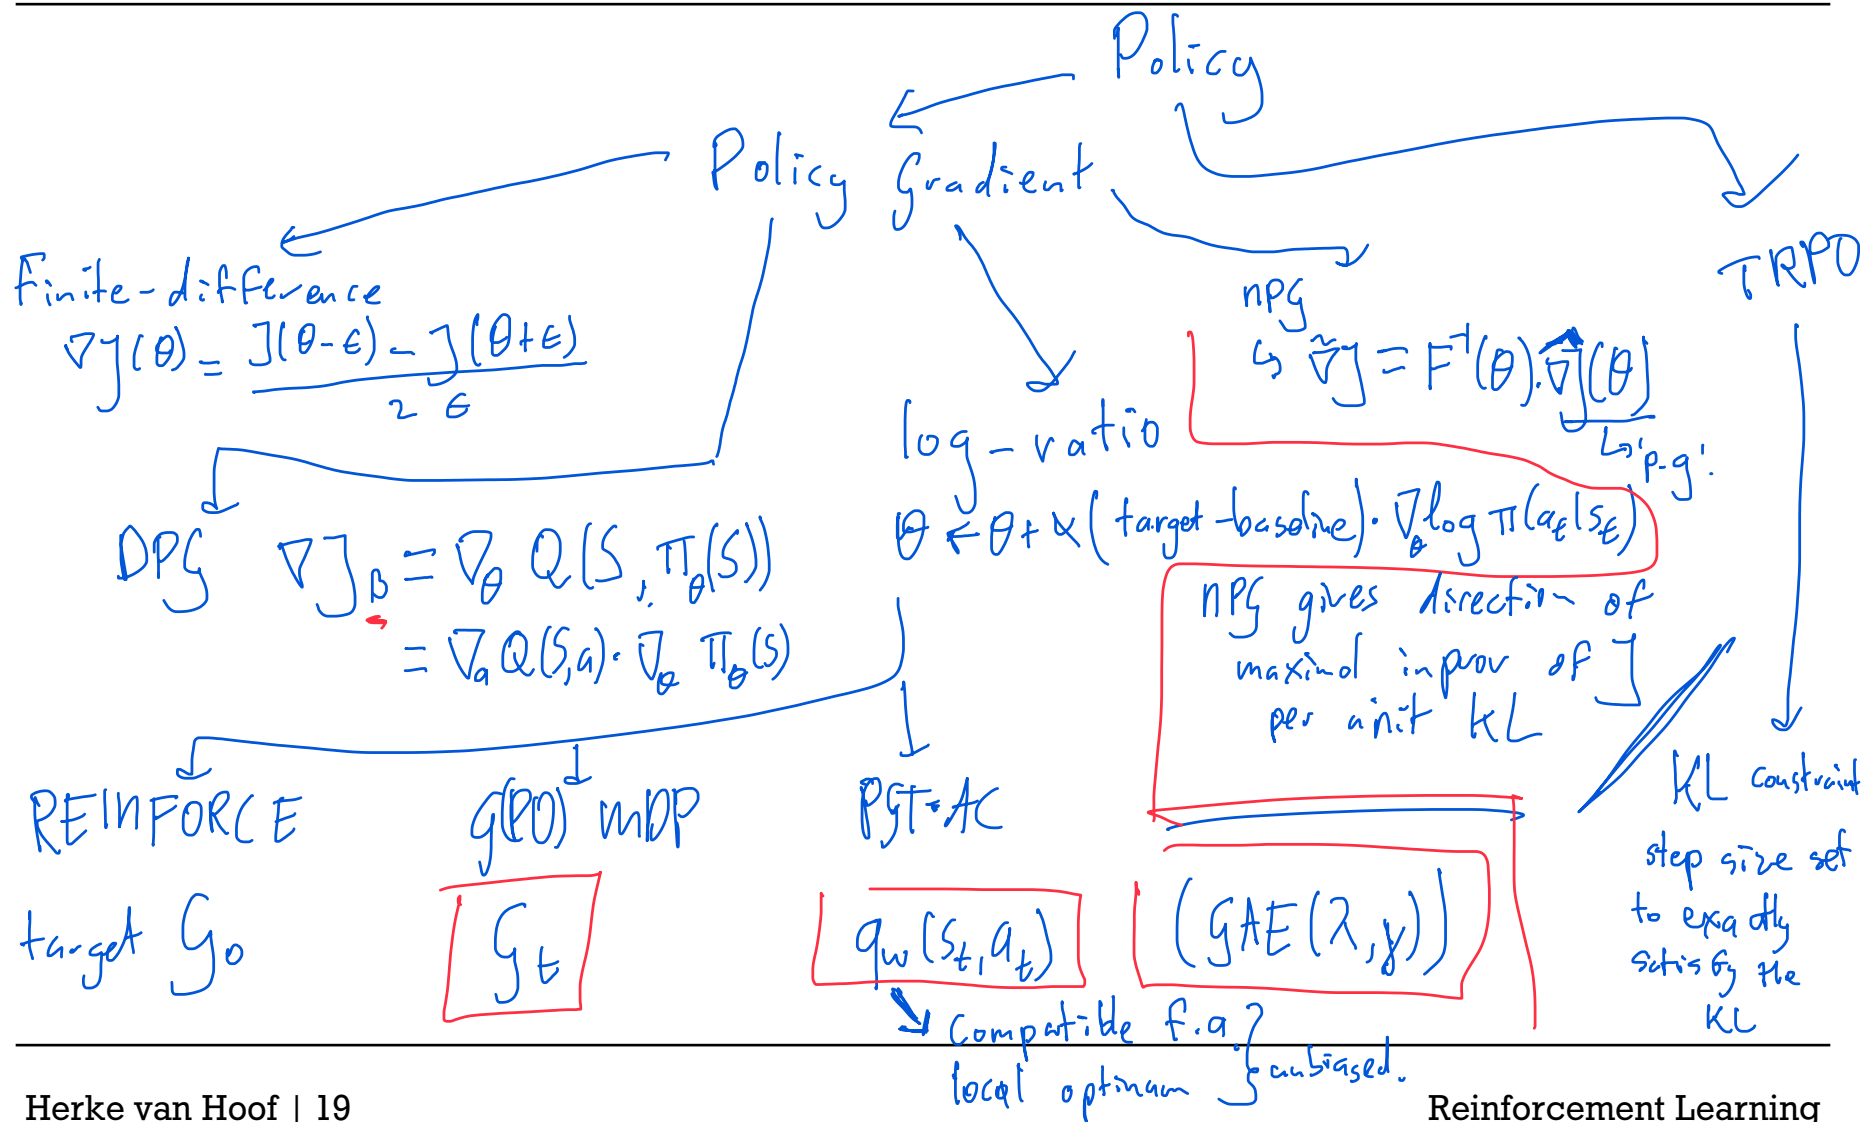 Policy
Policy Gradient
Finite-difference
∇J(θ) = J(θ-ϵ) - J(θ+ϵ)
2 ϵ
nPG
↳ ∇̃J = F⁻¹(θ).∇̂J(θ)
↳ 'p-g'.
TRPO
log-ratio
θ ← θ + α(target-baseline)·∇_θ log π(a_t|s_t)
DPG ∇J_β = ∇_θ Q(S, π_θ(S))
= ∇_a Q(S,a)·∇_θ π_θ(S)
nPG gives direction of
improv of J
per unit KL
KL constraint
step size set
to exactly
satisfy the
KL
REINFORCE
g(PO)MDP
PGT-AC
target G₀
G_t
q_w(s_t,a_t)
(GAE(λ,γ))
Compatible f.a.
local optimum
unbiased.
Herke van Hoof | 19
Reinforcement Learning